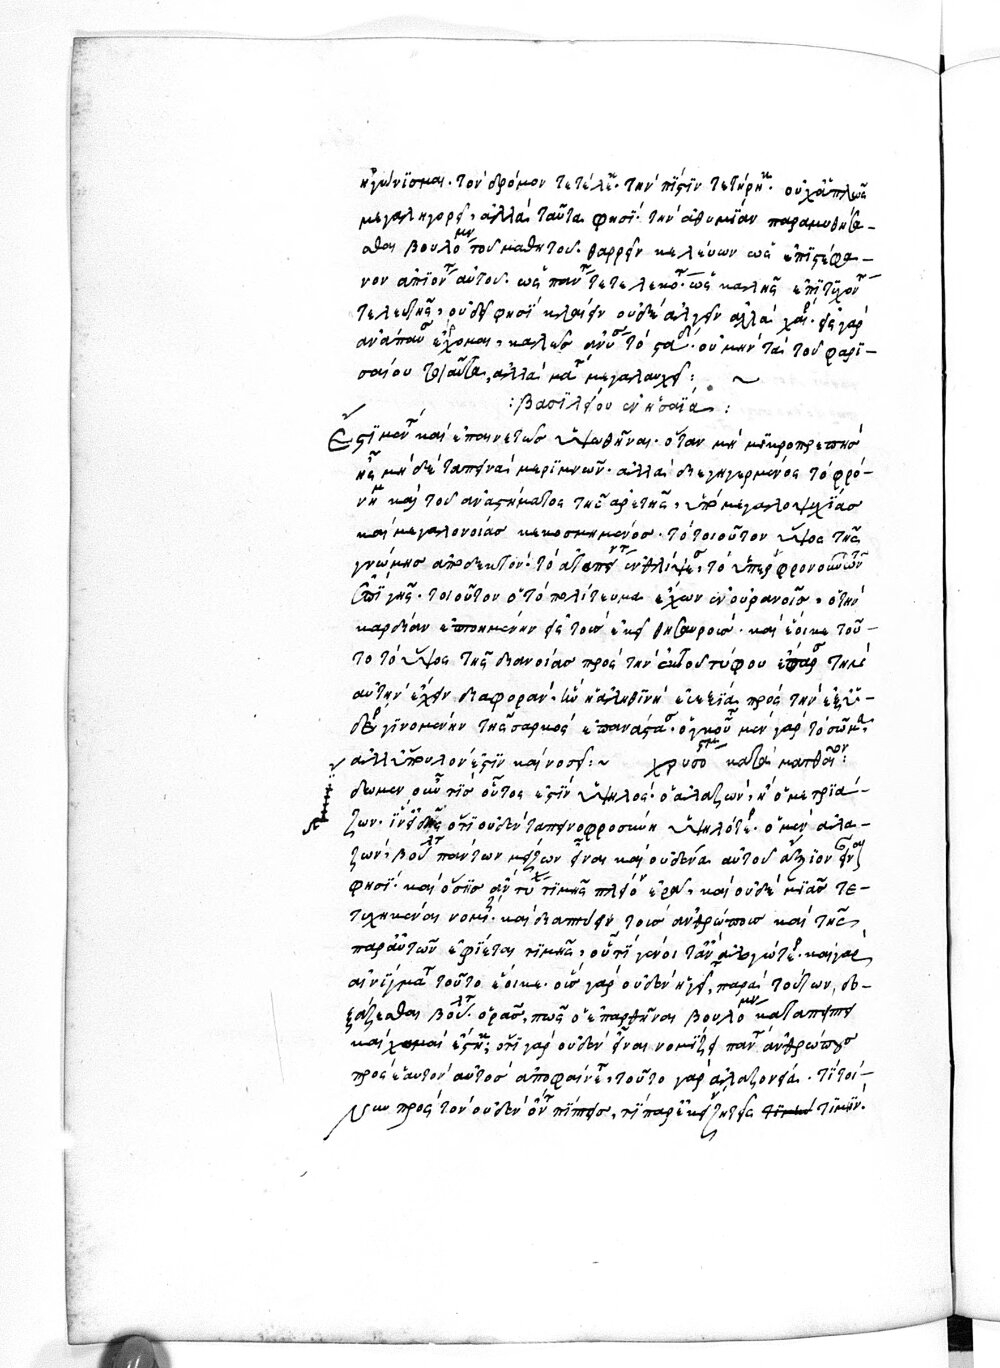 ἠγώνισμαι. τὸν δρόμον τετέλεκα. τὴν πίστιν τετήρηκα. οὐχ ἁπλῶς
μεγαληγορεῖ, ἀλλὰ ταῦτα φησὶ. τὴν ἀθυμίαν παραμυθήσα-
σθαι βουλόμενος τοῦ μαθητοῦ. θαρρεῖν κελεύων ὡς ἐπὶ στέφα-
νον ἀπιόντος αὐτοῦ. ὡς πάντα τετελεκότος. ὡς καλῆς ἐπιτυχόντος
τελευτῆς, οὐ δεῖ φησὶ κλαίειν οὐδὲ ἀλγεῖν ἀλλὰ χαίρειν. εἰς γὰρ
ἀνάπαυσιν ἔρχομαι, καλεῖ
σαίου ταῦτα, ἀλλὰ
: βασιλείου ἐν ἠσαΐα :
Ἔστι μέντοι καὶ ἐπαινετῶς ὑψωθῆναι. ὅταν μὴ μικροπρεπὴς
ᾖς μὴ δὲ ταπεινὰ μεριμνῶν. ἀλλὰ διεγηγερμένος τὸ φρό-
νημα καὶ τοῦ ἀναστήματος τῆς ἀρετῆς, ὑπὸ μεγαλοψυχίας
καὶ μεγαλονοίας κεκοσμημένος. τὸ τοιοῦτον ὕψος τῆς
γνώμης ἀποδεκτόν. τὸ ἀταπείνωτον ἐν θλίψεσι, τὸ ὑπερφρονοῦν τῶν
ἐπὶ γῆς. τοιοῦτον ὁ τὸ πολίτευμα ἔχων ἐν οὐρανοῖς, ὁ τὴν
καρδίαν ἐπηρμένην εἰς τοὺς ἐκεῖ θησαυροὺς. καὶ ἔοικε τοῦ-
το τὸ ὕψος τῆς διανοίας πρὸς τὴν ἐκ τοῦ τύφου ἔπαρσιν τὴν
αὐτὴν ἔχειν διαφορὰν. ἣν ἡ ἀληθινὴ εὐεξία πρὸς τὴν ἐξ ὑ-
δέρου γινομένην τῆς σαρκὸς ἐπανάστασιν. ὀγκοῦται μὲν γὰρ τὸ σῶμα
ἀλλ' ὕπουλόν ἐστιν καὶ νοσεῖ: ~ χρυσοστόμου κατὰ ματθαῖον:
δωμεν οὖν τίς οὗτος ἐστὶν ὑψηλὸς. ὁ ἀλαζὼν, ἢ ὁ μετριά-
ζων. ἵν' εἰδῇς ὅτι οὐδὲν ταπεινοφροσύνη ὑψηλότερον. ὁ μὲν ἀλα-
ζὼν, βούλεται πάντων μείζων εἶναι καὶ οὐδένα αὐτοῦ ἄξιον εἶναι
φησὶ. καὶ ὅσης ἂν τύχῃ τιμῆς πλείονος ἐρᾷ, καὶ οὐδὲ μιᾶς τε-
τυχηκέναι νομίζει. καὶ διαπτύει τοὺς ἀνθρώπους καὶ τῆς
παρ' αὐτῶν ἐφίεται τιμῆς, οὗ τί γένοιτ' ἂν ἀλογώτερον. καὶ γὰρ
αἰνίγματι τοῦτο ἔοικε. οὓς γὰρ οὐδὲν ἡγεῖται, παρὰ τούτων, δο-
ξάζεσθαι βούλεται. ὁρᾷς, πῶς ὁ ἐπαρθῆναι βουλόμενος καταπίπτει
καὶ χαμαὶ ἕστηκε; ὅτι γὰρ οὐδὲν εἶναι νομίζει πάντας ἀνθρώπους
πρὸς ἑαυτὸν αὐτὸς ἀποφαίνεται, τοῦτο γὰρ ἀλαζονεία. τί τοί-
νυν πρὸς τὸν οὐδὲν ὄντα πίπτεις, τί παρ' ἐκείνου ζητεῖς τιμήν.